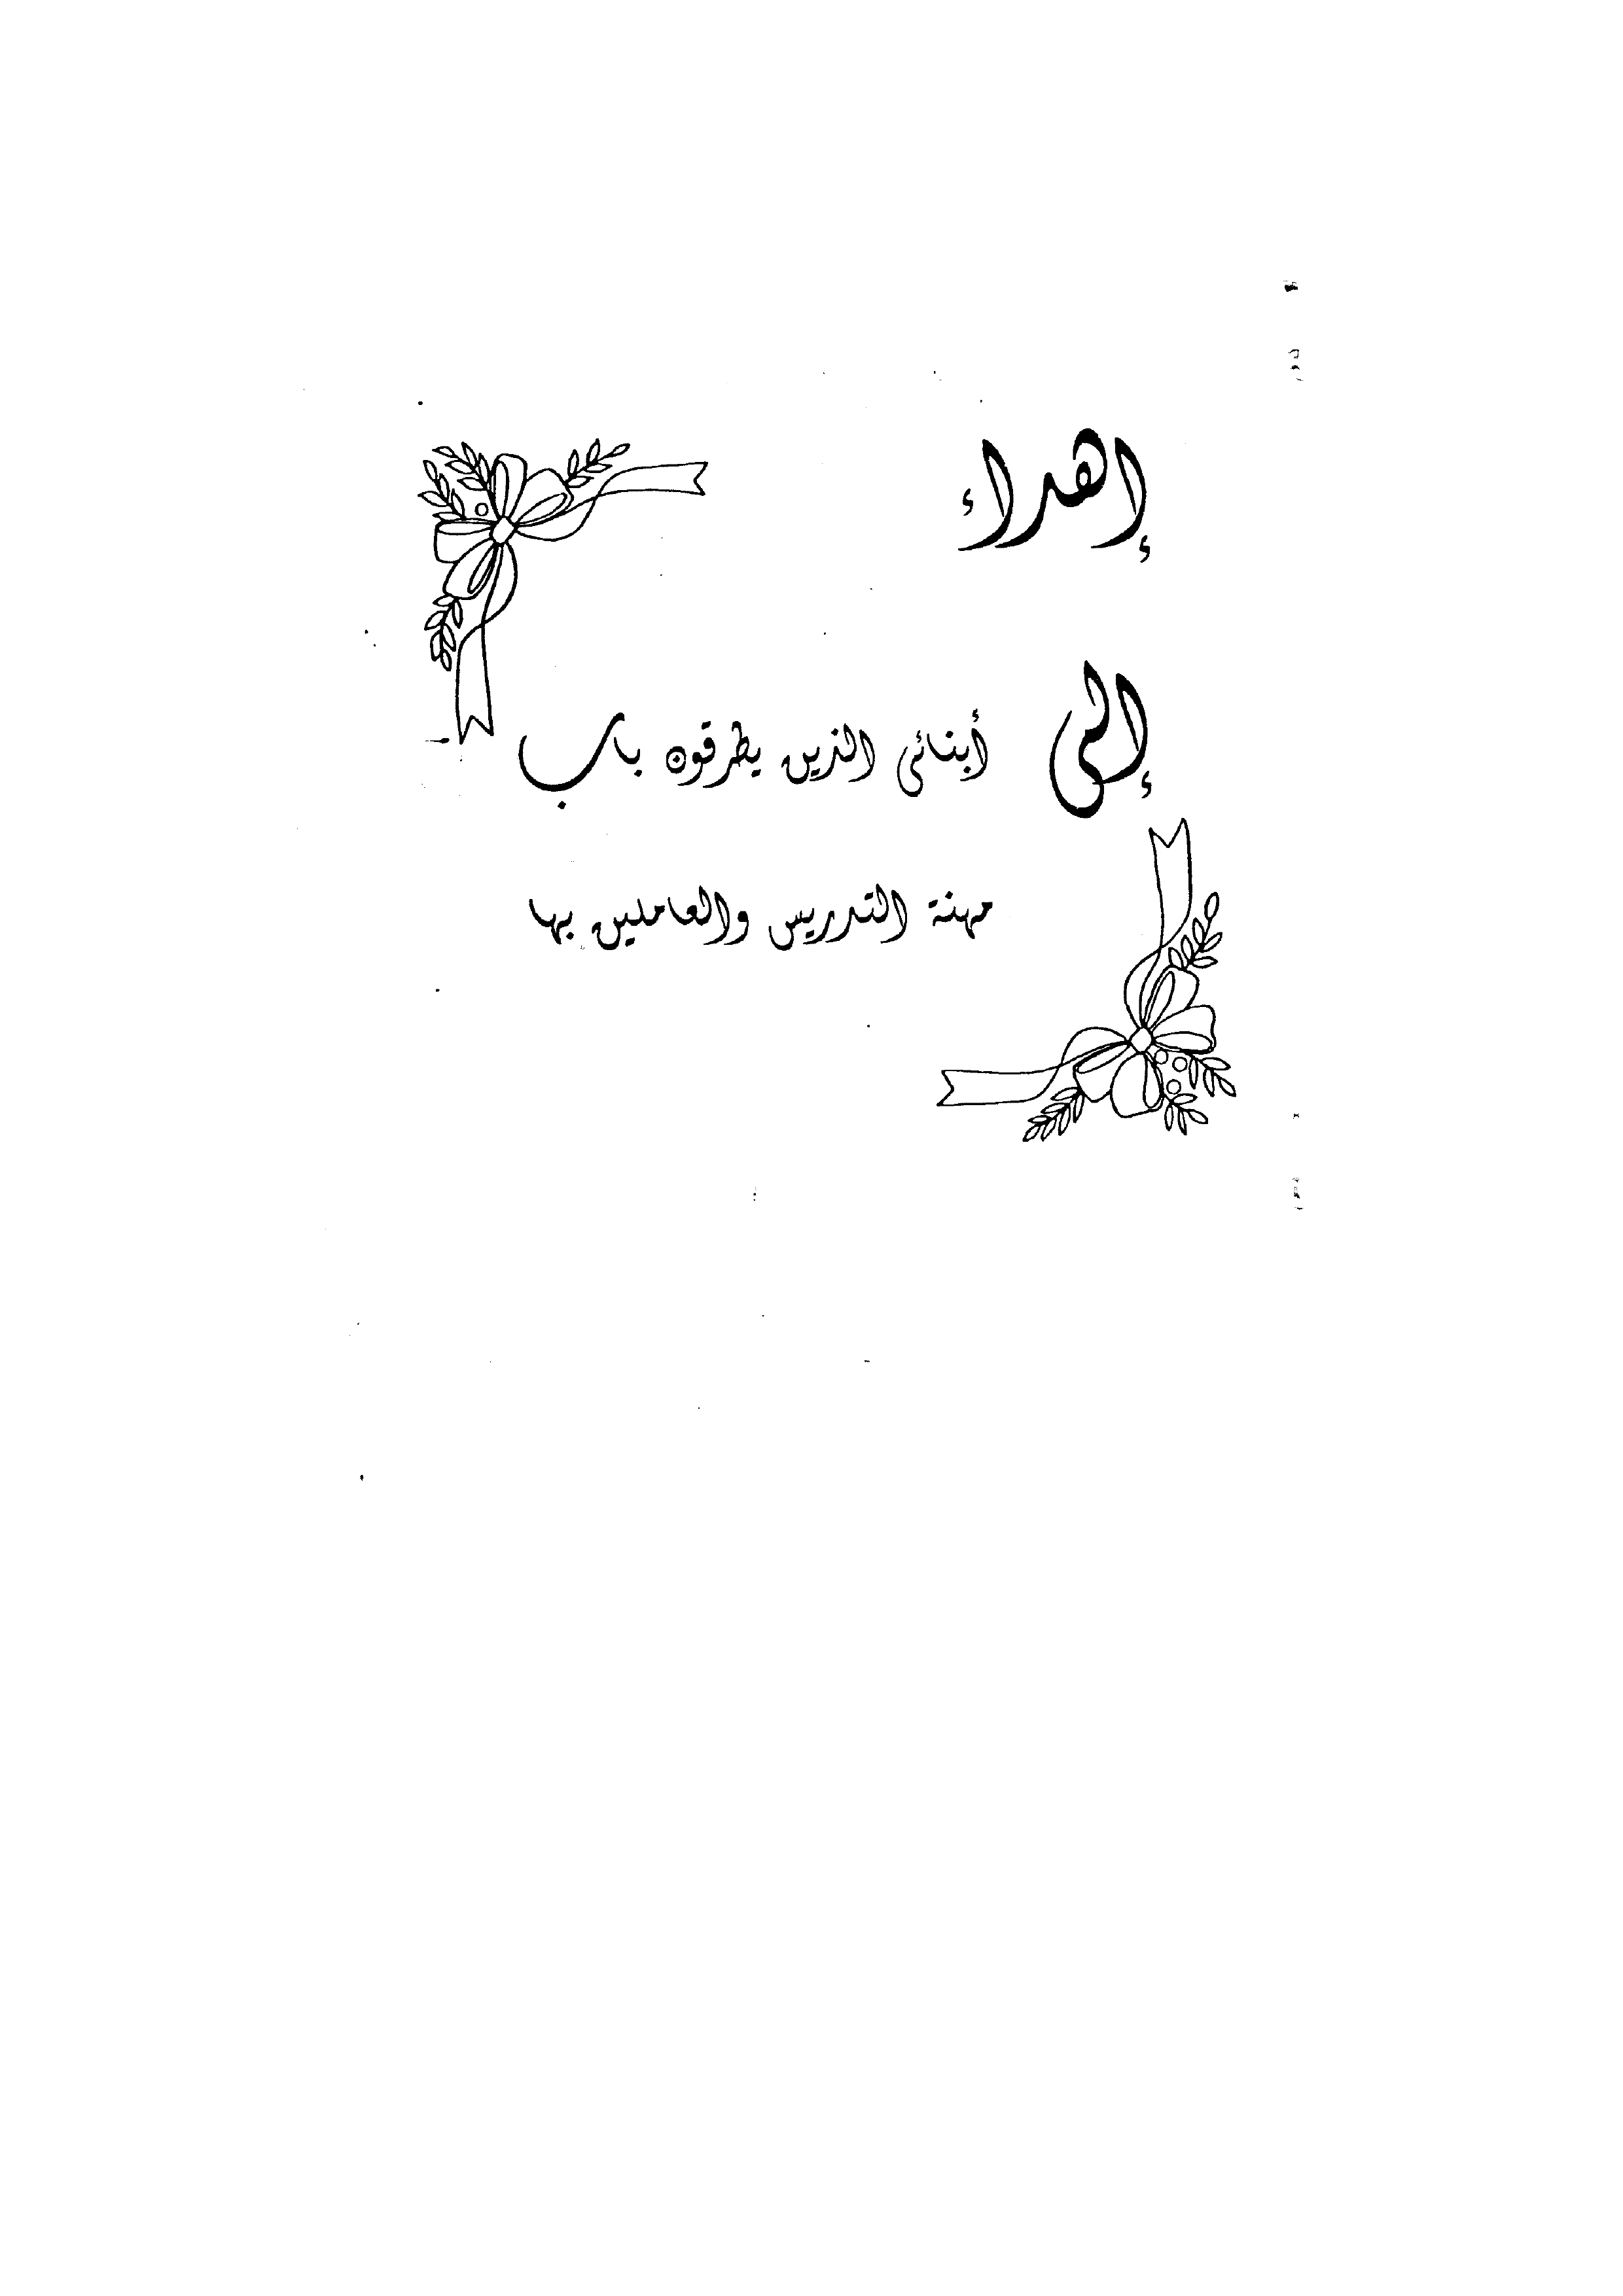 إهداء
إلى أبنائى الذين يطرقون باب
مهنة التدريس والعاملين بها